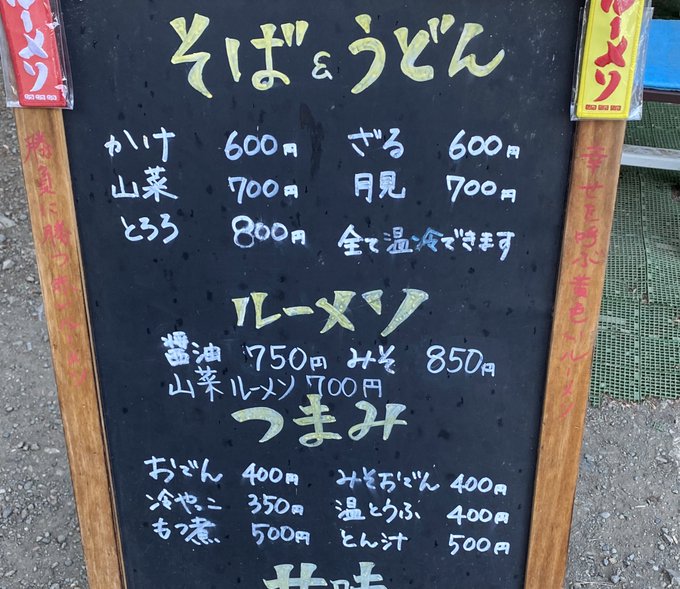 ルーメソ
ルーメソ
そば&うどん
かけ 600円 ざる 600円
山菜 700円 月見 700円
とろろ 800円 全て温冷できます
ルーメソ
醤油 750円 みそ 850円
山菜ルーメソ 700円
つまみ
おでん 400円 みそおでん 400円
冷やっこ 350円 温とうふ 400円
もつ煮 500円 とん汁 500円
甘味
勝負に勝つ
幸せを呼ぶ黄色いルーメソ